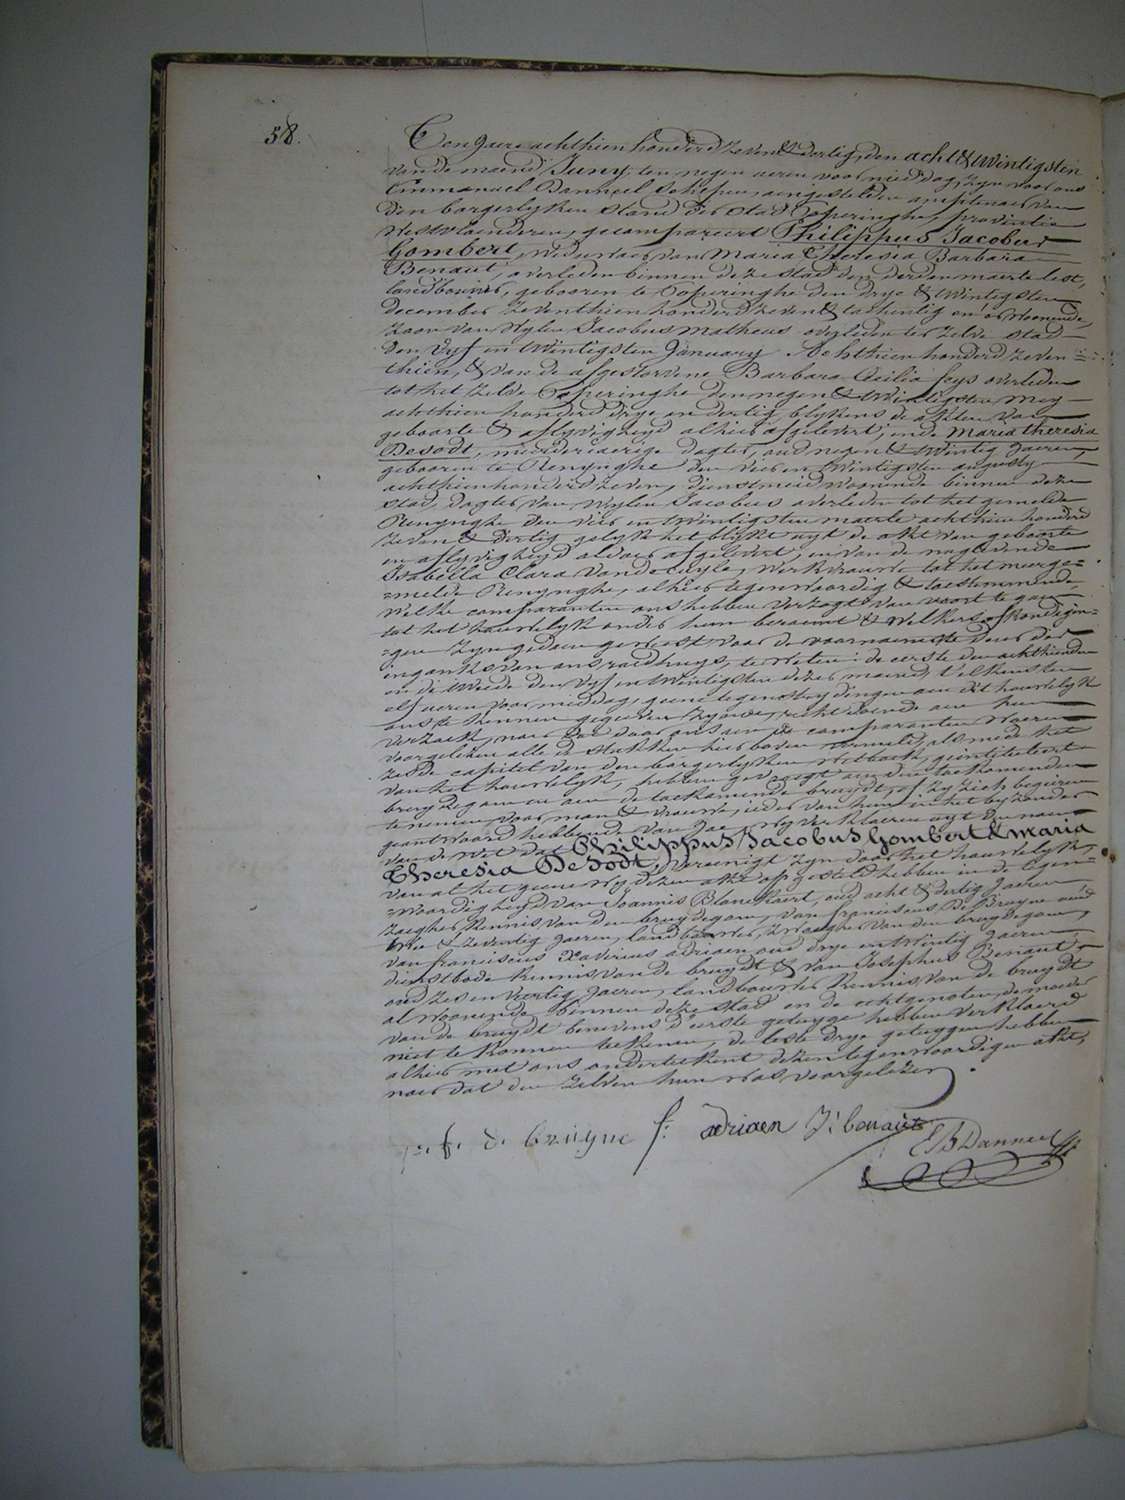 58.
Ten jaere achthien honderd zeven & dertig, den acht & twintigsten
van de maend Juny, ten negen ueren voor middag, zyn voor ons
Emmanuel Danneel Schepen, aengestelden amptenaer van
den borgerlyken stand der stad Poperinghe, provintie
Westvlaenderen, gecompareert Philippus Jacobus
Gombert, weduwaer van Maria Theresia Barbara
Benaut, overleden binnen deze stad den derden maerte lest,
landbouwer, gebooren te Poperinghe den drye & twintigsten
december zeventhien honderd zeven & tachentig en er woonende,
zoon van wylen Jacobus Matheus overleden ter zelve stad
den vyf en twintigsten January achthien honderd zeven
thien, & van de afgestorvene Barbara Cecilia feys overleden
tot het zelve Poperinghe den negen & twintigsten mey
achthien honderd drye en dertig blykens de akten van
geboorte & aflyvigheyd alhier afgelevert; ende Maria theresia
Desodt, meerderjaerige dogter, oud negen & twintig jaeren,
gebooren te Renynghe den vier en twintigsten augusty
achthien honderd zeven, dienstmeid woonende binnen deze
stad, dogter van wylen Jacobus overleden tot het gemelde
Renynghe den vier en twintigsten maerte achthien honderd
zeven & dertig gelyk het blykt uyt de akt van geboorte
en aflyvigheyd aldaer afgelevert, en van de nagelevende
Isabella Clara Vandecuyle, werkvrouwe tot het meerge=
=melde Renynghe, alhier tegenwoordig & toestemmende,
welke comparanten ons hebben verzogt van voort te gaen
tot het houwelyk onder hun beraemt & welkers afkondigin=
=gen zyn gedaen geweest voor de voornaemste deure der
ingank van ons raedhuys, te weten: de eerste den achthienden
en de tweede den vyf en twintigsten dezer maend, t'elkens ten
elf ueren voor middag, geene tegenstrydingen aen dit houwelyk
ons te kennen gegeven zynde, recht doende aen hun
verzoek, naer dat door ons aen de comparanten waeren
voorgelezen alle de stukken hier boven vermeld, als mede het
zesde capitel van den borgerlyken wetboek, geintituleert
van het houwelyk, hebben gevraegt aen den toekomenden
bruydegom en aen de toekomende bruydt, of zy zich begeeren
te nemen voor man & vrouwe, ieder van hun in het byzonder
geantwoord hebbende van Jae, wy verklaeren uyt den naem
van de Wet dat Philippus Jacobus Gombert & maria
Theresia Desodt, vereenigt zyn door het houwelyk,
van al het geene wy dezen akt opgesteld hebben in de tegen=
=woordigheyd van Joannis Blanckaert, oud acht & dertig jaeren
zwagher kennis van den bruydegom, van franciscus De Bruyne oud
drie & zeventig jaeren, landbouwer, zwagher van den bruydegom,
van franciscus Xaverius adriaen oud drye en twintig jaeren,
dienstbode kennis van de bruydt & van Josephus Benaut
oud zes en veertig jaeren, landbouwer kennis van de bruydt
al woonende binnen deze stad en de echtgenoten, de moeder
van de bruydt benevens d'eerste getuyge hebben verklaerd
niet te konnen teekenen, de leste drye getuygen hebben
alhier met ons onderteekent dezen tegenwoordigen akt,
naer dat den zelven hun was voorgelezen.
f. d. bruyne f: adriaen J: benaut
E B Danneel